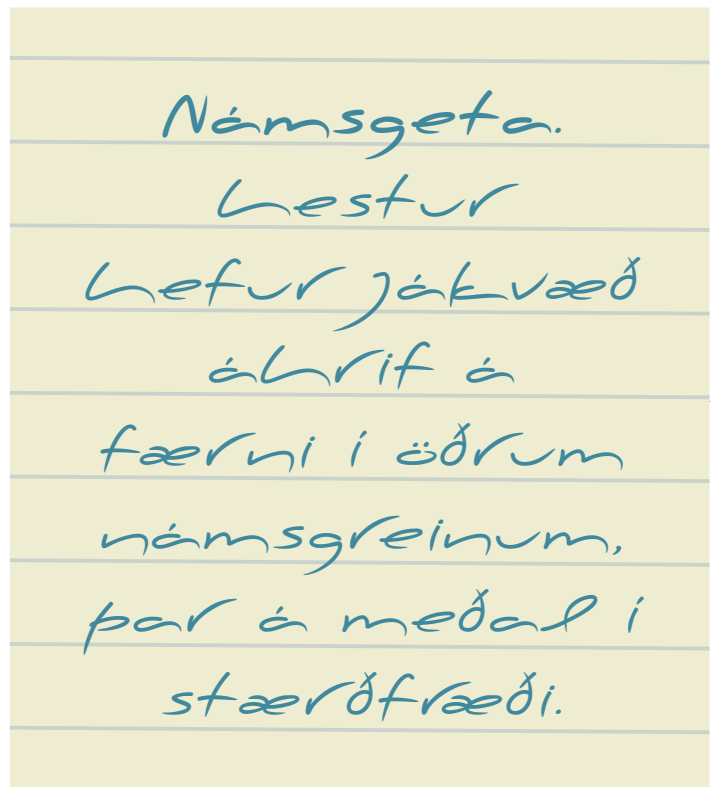 Námsgeta.
Lestur
hefur jákvæð
áhrif á
færni í öðrum
námsgreinum,
þar á meðal í
stærðfræði.